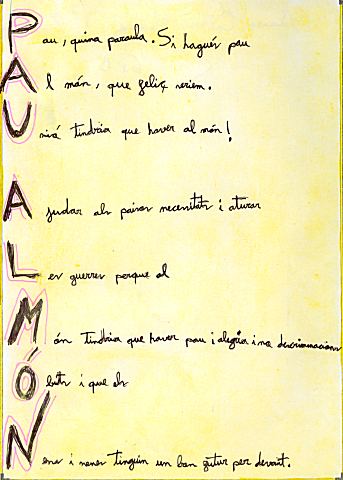 Pau, quina paraula. Si hagués pau
Al món, que feliç seriem.
tindria que haver al món!
Ajudar als paisos necesitats i aturar
Les guerres perque al
Món tindria que haver pau i alegria i no descriminacions
i que els
Nens i nenes tinguin un bon futur per devant.